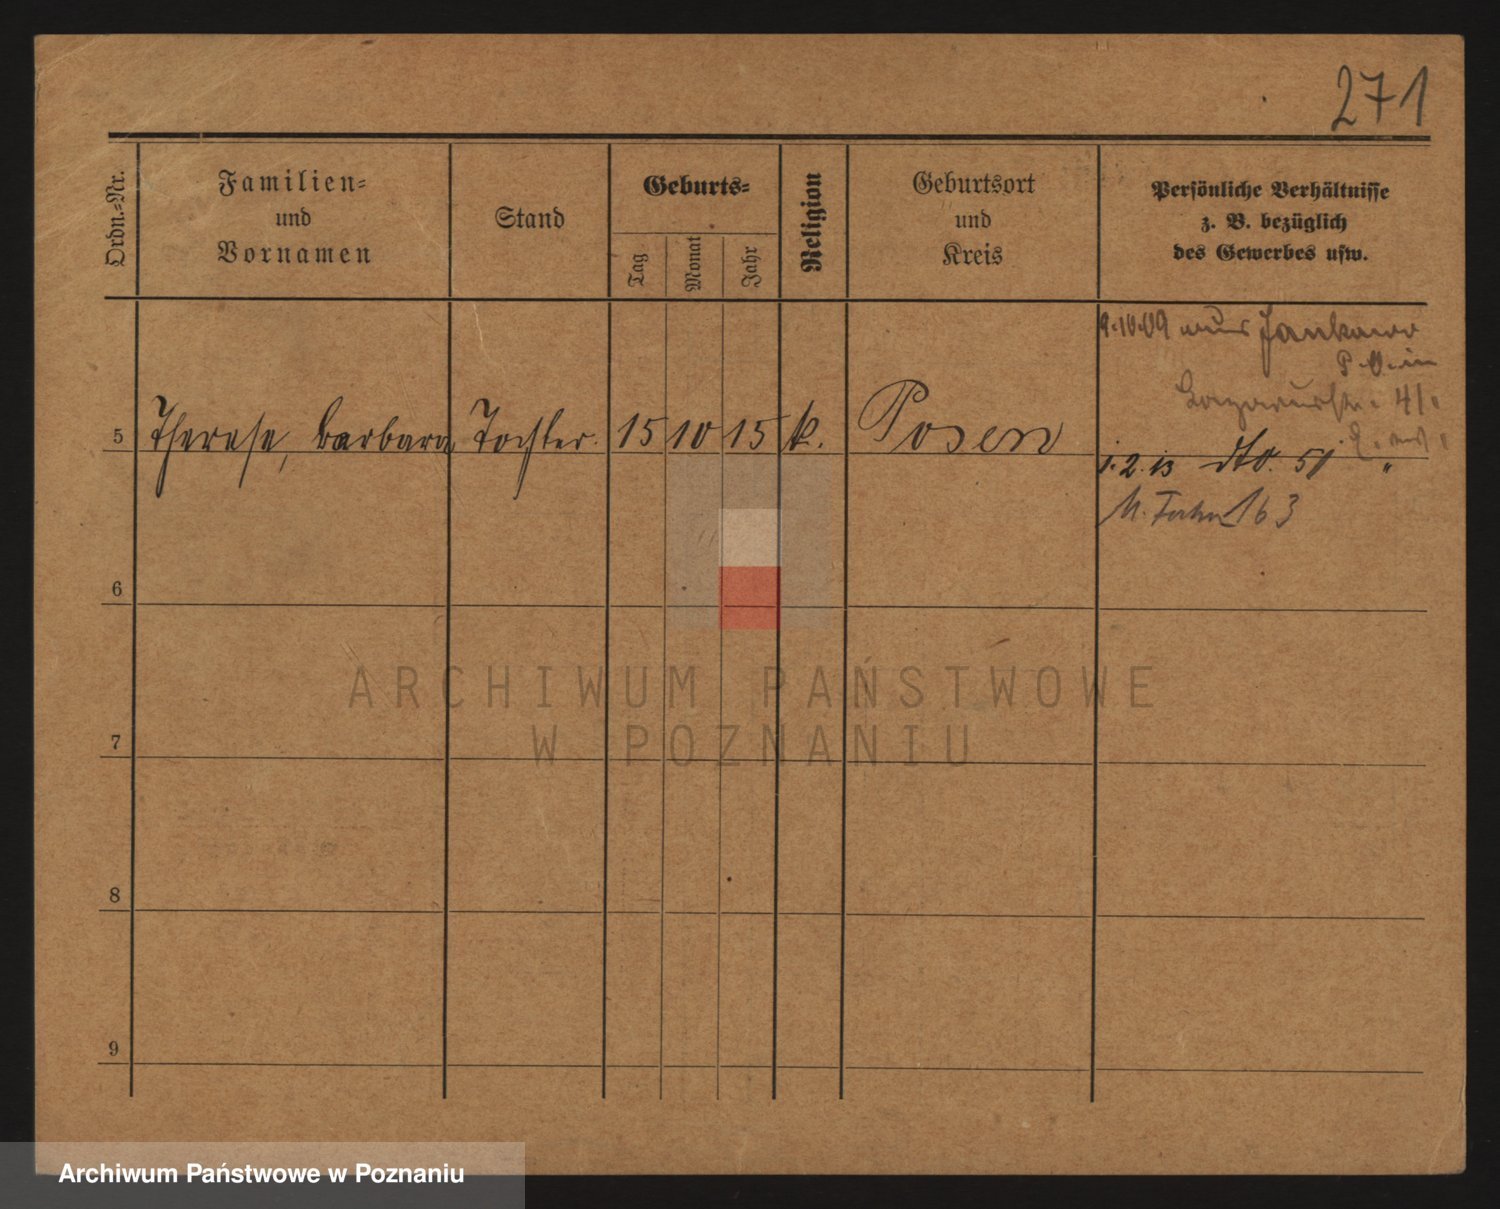 271
Ordn.-Nr.
Familien-
und
Vornamen
Stand
Geburts-
Tag
Monat
Jahr
Religion
Geburtsort
und
Kreis
Persönliche Verhältnisse
z. B. bezüglich
des Gewerbes usw.
9.10.09 aus Jankowo
P. O. in
5 Therese, Barbara Tochter 15 10 15 k. Posen
1.2.13 dto. 51 "
163
6
7
8
9
ARCHIWUM PAŃSTWOWE
W POZNANIU
Archiwum Państwowe w Poznaniu